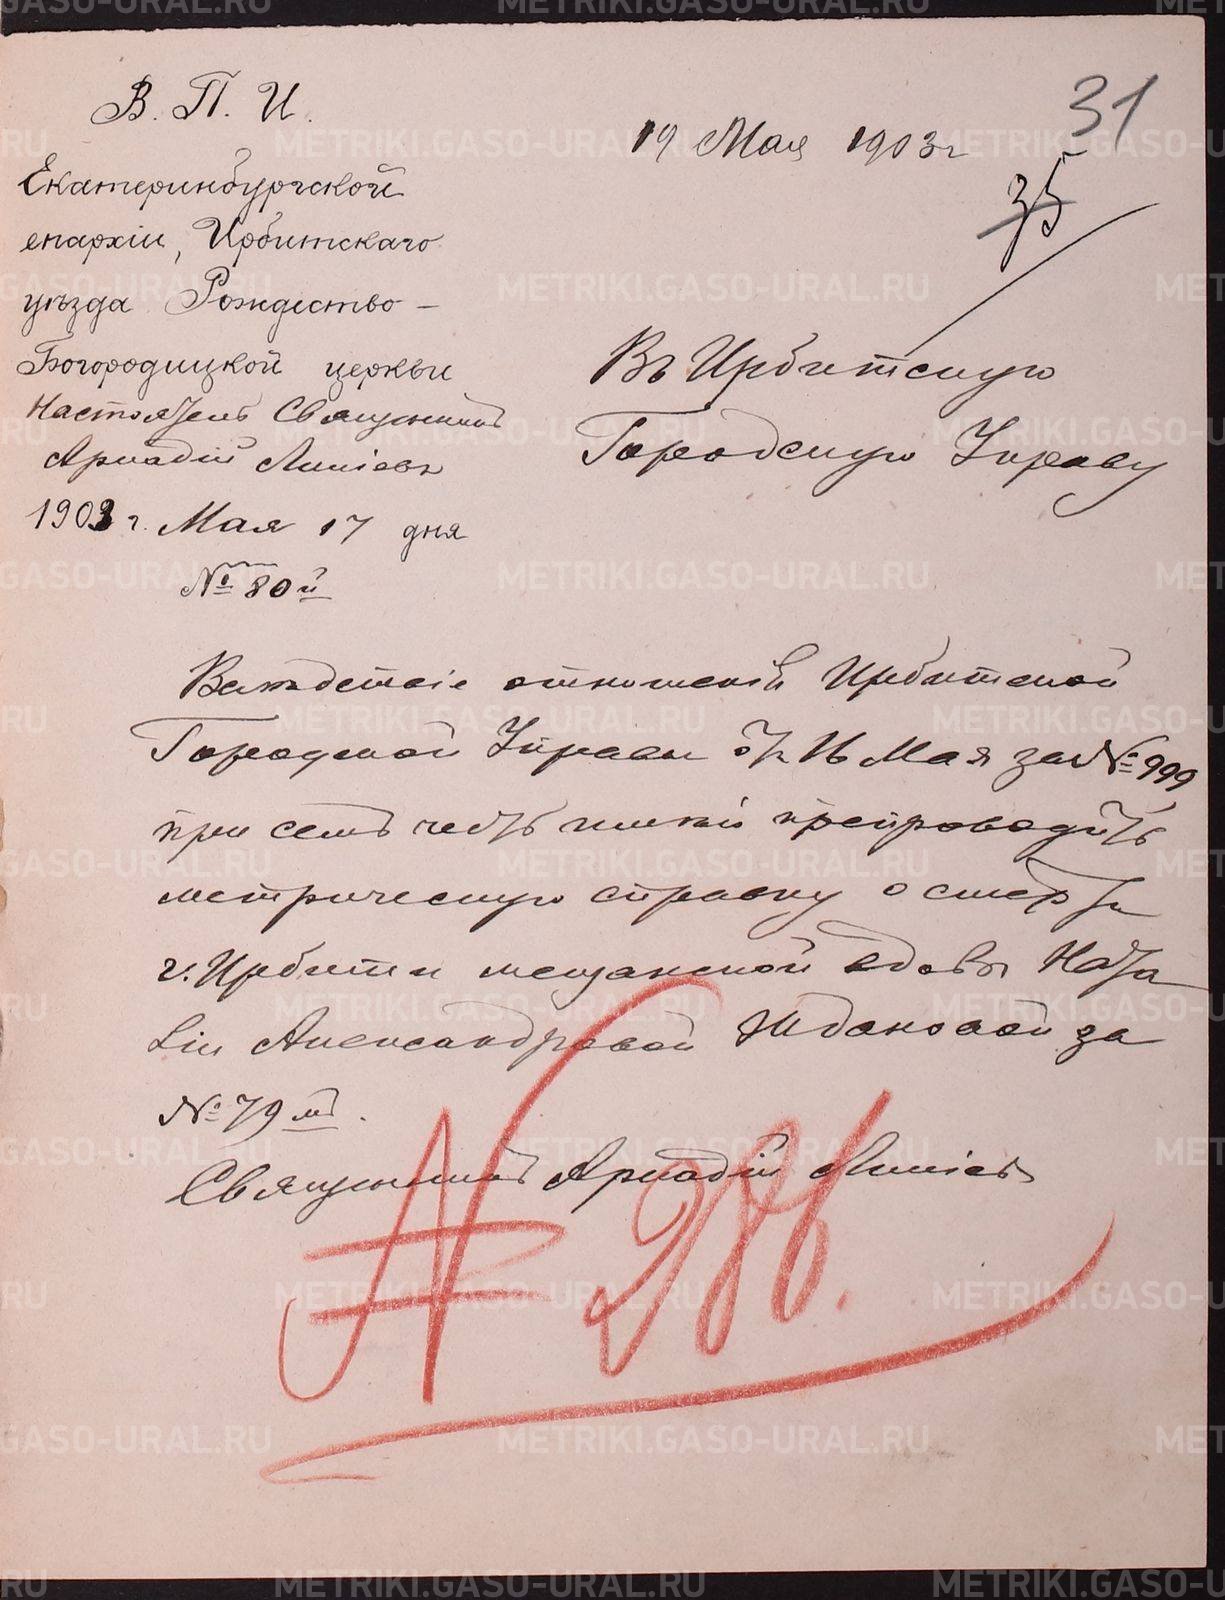 В. П. И.
Екатеринбургской
епархіи, Ирбитскаго
уѣзда Рождество-
Богородицкой церкви
Настоятель Священникъ
Аркадій Линіевъ
1903 г. Мая 17 дня
№ 80й
19 Мая 1903 г
31
35
Въ Ирбитскую
Городскую Управу
Вслѣдствіе отношенія Ирбитской
Городской Управы отъ 16 Мая за № 999
при семъ честь имѣю препроводить
метрическую справку о смерти
г. Ирбити мещанской вдовы Ната
ліи Александровой Ждановой за
№ 79мъ.
Священникъ Аркадій Линіевъ
№ 286.
METRIKI.GASO-URAL.RU